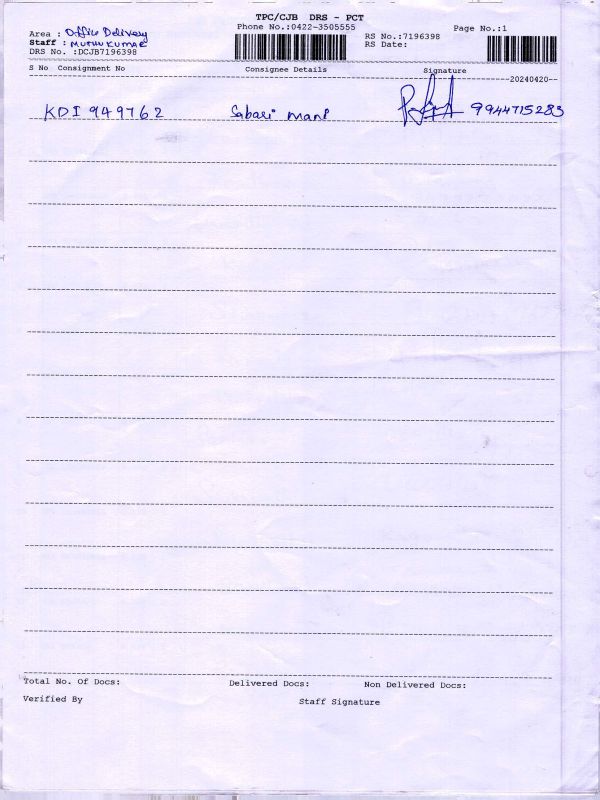 TPC/CJB DRS - PCT
Phone No.:0422-3505555
Page No.:1
Area : Office Delivery
Staff : MUTHU KUMAR
DRS No. :DCJB7196398
RS No.:7196398
RS Date:
S No Consignment No Consignee Details Signature
20240420
KDI 949762 Sabari mani 9944715283
Total No. Of Docs: Delivered Docs: Non Delivered Docs:
Verified By Staff Signature